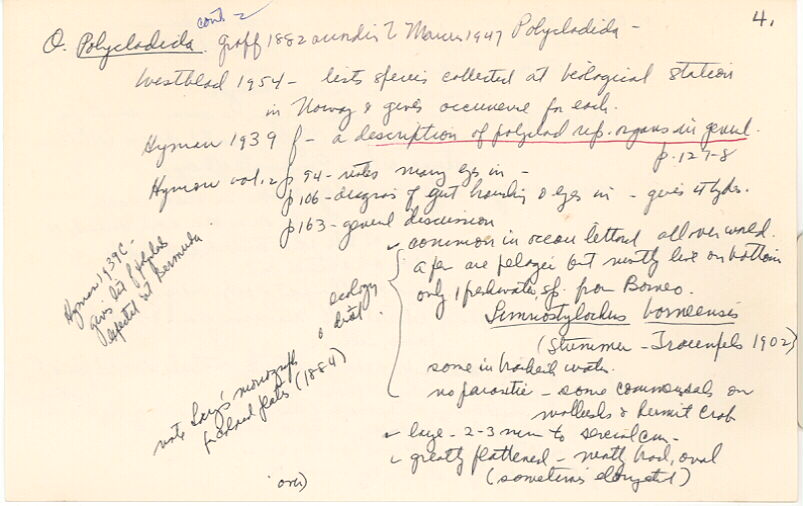 cont 2
4.
O. Polycladida. Graff 1882 Marcus 1947 Polycladida -
Westblad 1954 - lists species collected at biological station
in Norway & gives occurence for each.
Hyman 1939 f - a description of polyclad rep. organs in general.
p. 127-8
Hyman vol. 2 p 94 - notes many eyes in -
p 106 - diagrams of gut branching & eyes in - gives 4 types.
p 163 - general discussion
common in ocean littoral all over world.
a few are pelagic but mostly live on bottom
only 1 freshwater sp. from Borneo.
Limnostylochus borneensis
(Stummer-Traunfels 1902)
some in brackish water.
no parasitic - some commensals on
mollusks & hermit crab
large - 2-3 mm to several cm -
greatly flattened - mostly broad, oval
(sometimes elongated)
ecology
& diet.
Hyman 1939C -
gives list of polyclads
collected at Bermuda.
note Lang's monograph
& colored plates (1884)
over)